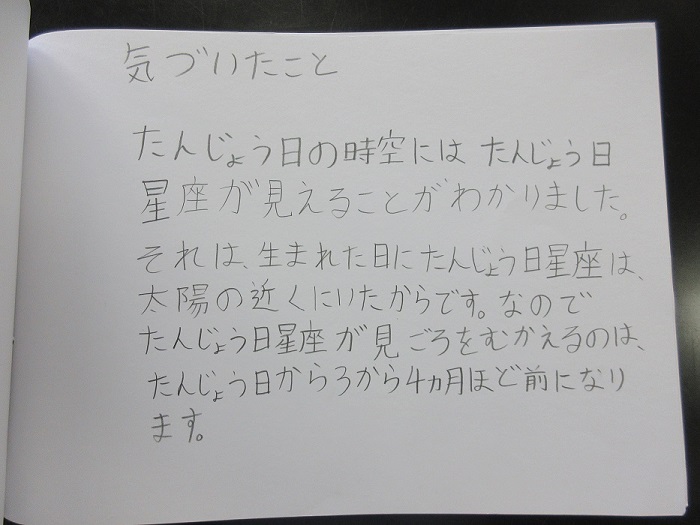 気づいたこと
たんじょう日の時空には たんじょう日
星座が見えることがわかりました。
それは、生まれた日にたんじょう日星座は、
太陽の近くにいたからです。なので
たんじょう日星座が見ごろをむかえるのは、
たんじょう日から3から4ヵ月ほど前になり
ます。